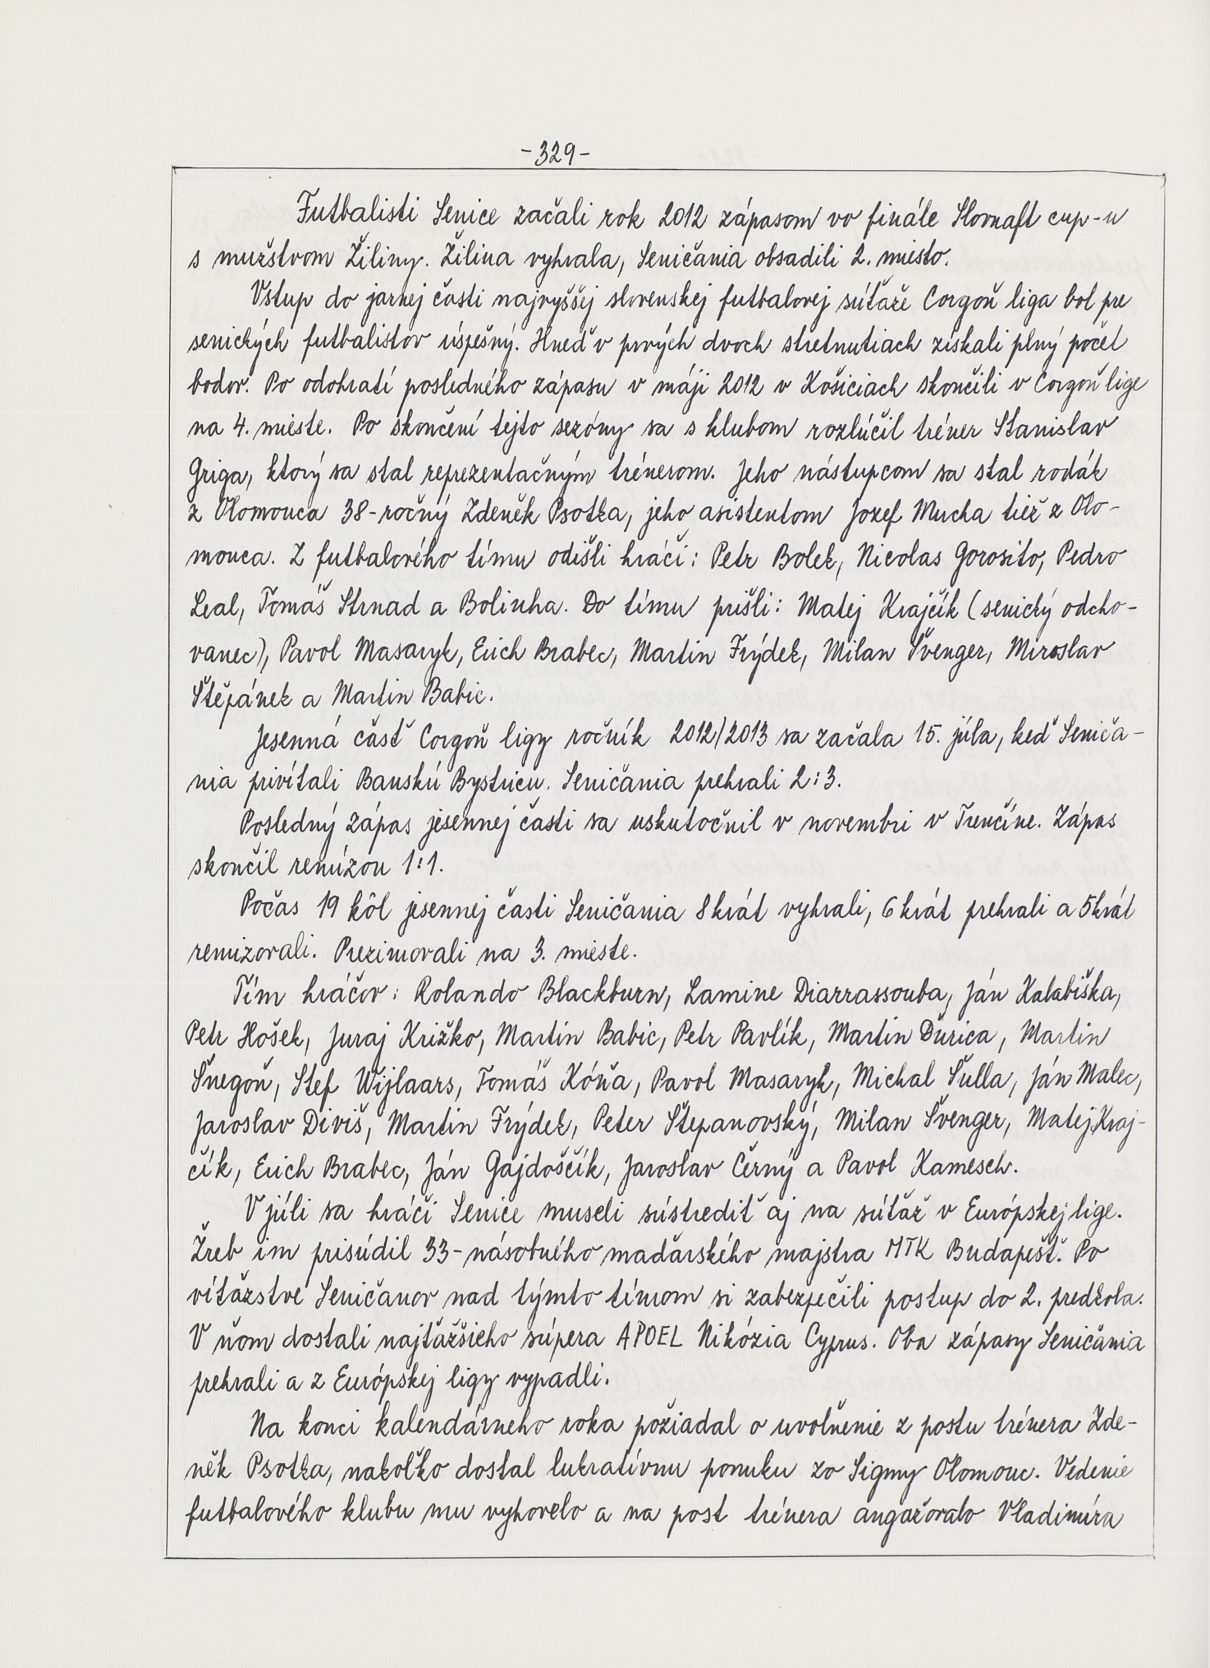 -329-
Futbalisti Senice začali rok 2012 zápasom vo finále Slovnaft cup-u
s mužstvom Žiliny. Žilina vyhrala, Seničania obsadili 2. miesto.
Vstup do jarnej časti najvyššej slovenskej futbalovej súťaže Corgoň liga bol pre
senických futbalistov úspešný. Hneď v prvých dvoch stretnutiach získali plný počet
bodov. Po odohratí posledného zápasu v máji 2012 v Košiciach skončili v Corgoň lige
na 4. mieste. Po skončení tejto sezóny sa s klubom rozlúčil tréner Stanislav
Griga, ktorý sa stal reprezentačným trénerom. Jeho nástupcom sa stal rodák
z Olomouca 38-ročný Zdeněk Psotka, jeho asistentom Jozef Mucha tiež z Olo-
mouca. Z futbalového tímu odišli hráči: Petr Bolek, Nicolas Gorosito, Pedro
Leal, Tomáš Strnad a Bolinha. Do tímu prišli: Matej Krajčík (senický odcho-
vanec), Pavol Masaryk, Erich Brabec, Martin Frýdek, Milan Švenger, Miroslav
Štěpánek a Martin Babic.
Jesenná časť Corgoň ligy ročník 2012/2013 sa začala 15. júla, keď Seniča-
nia privítali Banskú Bystricu. Seničania prehrali 2:3.
Posledný zápas jesennej časti sa uskutočnil v novembri v Trenčíne. Zápas
skončil remízou 1:1.
Počas 19 kôl jesennej časti Seničania 8krát vyhrali, 6krát prehrali a 5krát
remizovali. Prezimovali na 3. mieste.
Tím hráčov: Rolando Blackburn, Lamine Diarrassouba, Ján Kalabiška,
Petr Hošek, Juraj Križko, Martin Babic, Petr Pavlík, Martin Ďurica, Martin
Šnegoň, Stef Wijlaars, Tomáš Kóňa, Pavol Masaryk, Michal Šulla, Ján Malec,
Jaroslav Diviš, Martin Frýdek, Peter Štepanovský, Milan Švenger, Matej Kraj-
čík, Erich Brabec, Ján Gajdoščík, Jaroslav Černý a Pavol Kamesch.
V júli sa hráči Senice museli sústrediť aj na súťaž v Európskej lige.
Žreb im prisúdil 33-násobného maďarského majstra MTK Budapešť. Po
víťazstve Seničanov nad týmto tímom si zabezpečili postup do 2. predkola.
V ňom dostali najťažšieho súpera APOEL Nikózia Cyprus. Oba zápasy Seničania
prehrali a z Európskej ligy vypadli.
Na konci kalendárneho roka požiadal o uvoľnenie z postu trénera Zde-
něk Psotka, nakoľko dostal lukratívnu ponuku zo Sigmy Olomouc. Vedenie
futbalového klubu mu vyhovelo a na post trénera angažovalo Vladimíra